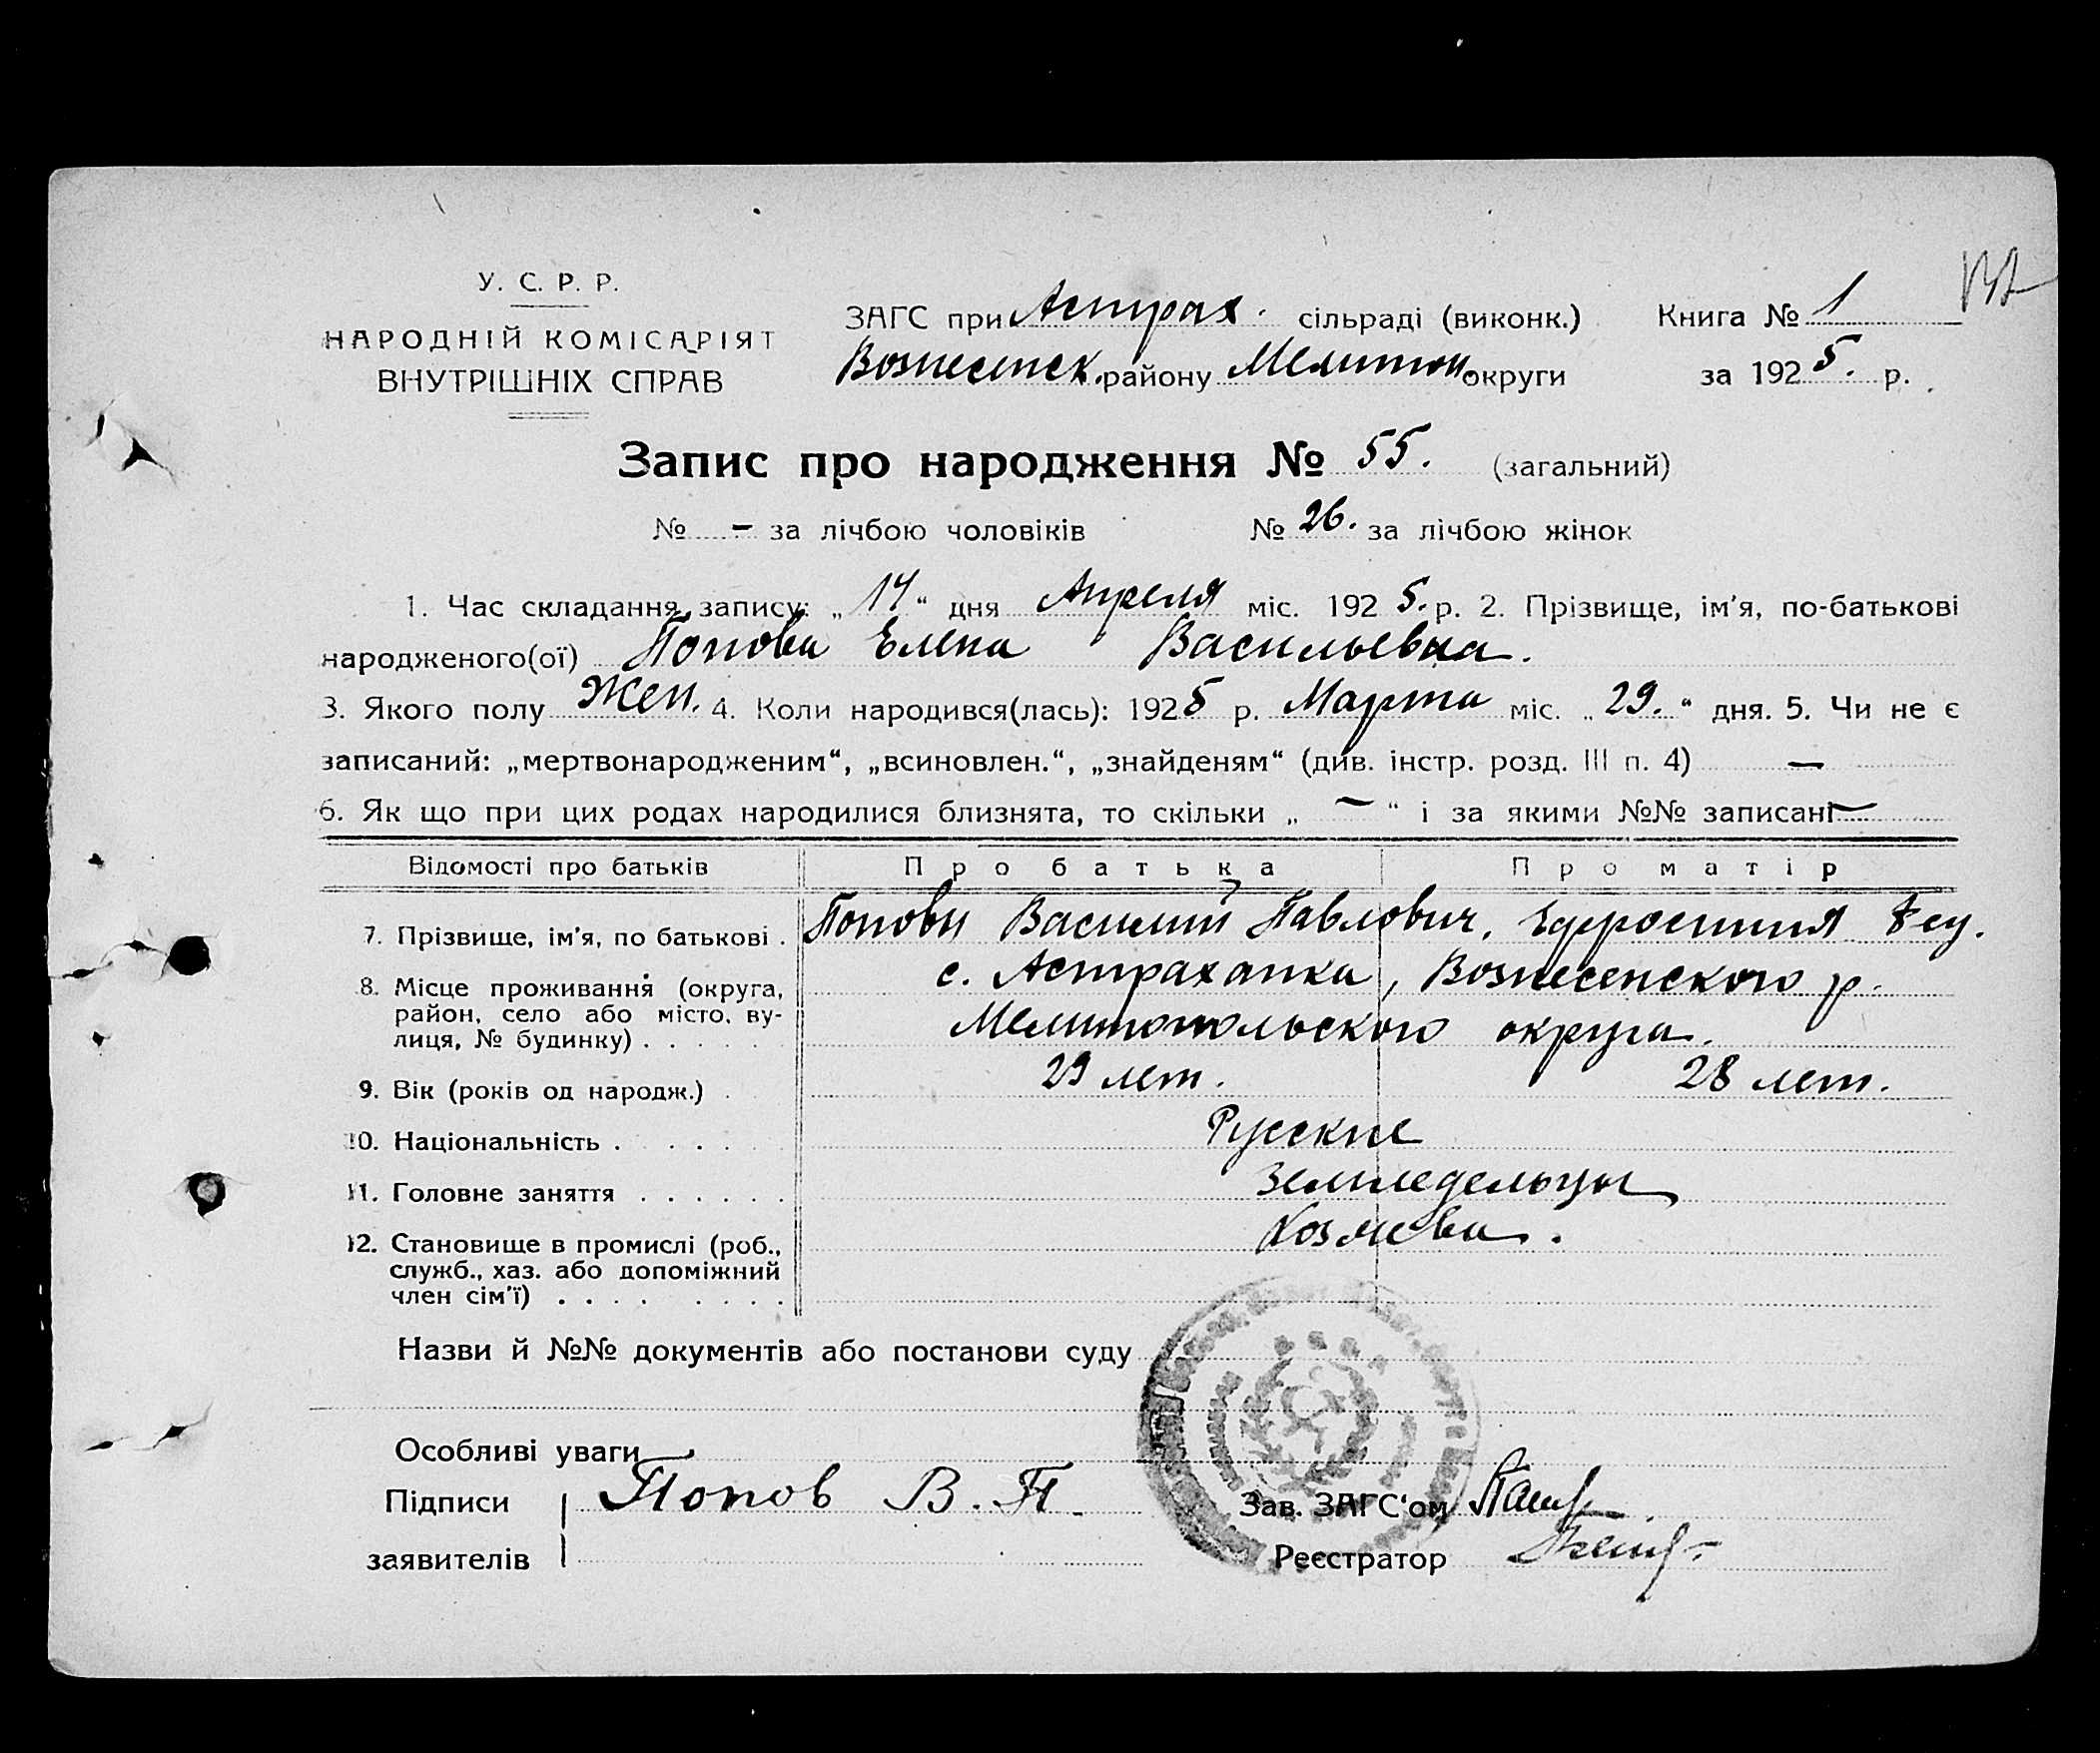 У. С. Р. Р.
НАРОДНІЙ КОМІСАРІЯТ
ВНУТРІШНІХ СПРАВ
ЗАГС при Астрах. сільраді (виконк.)
Вознесенск. району Мелитоп. округи
Книга № 1
за 1925. р.
Запис про народження № 55. (загальний)
№ – за лічбою чоловіків № 26. за лічбою жінок
1. Час складання запису: „14“ дня Апреля міс. 1925. р. 2. Прізвище, ім'я, по-батькові
народженого(ої) Попова Елена Васильевна.
3. Якого полу Жен. 4. Коли народився(лась): 1925 р. Марта міс. „29.“ дня. 5. Чи не є
записаний: „мертвонародженим“, „всиновлен.“, „знайденям“ (див. інстр. розд. III п. 4) —
6. Як що при цих родах народилися близнята, то скільки „ — “ і за якими №№ записані —
Відомості про батьків Про батька Про матір
7. Прізвище, ім'я, по батькові . Поповы Василий Павлович, Ефросиния
8. Місце проживання (округа, с. Астраханка, Вознесенского р.
район, село або місто, ву-
лиця, № будинку) . . . . . Мелитопольского округа.
9. Вік (років од народж.) . 29 лет. 28 лет.
10. Національність . . . . . Русские
11. Головне заняття . . . . . . Земледельцы
12. Становище в промислі (роб., Хозяева.
служб., хаз. або допоміжний
член сім'ї) . . . . . . . .
Назви й №№ документів або постанови суду
Особливі уваги
Підписи Попов В. П. Зав. ЗАГС'ом
заявителів Реєстратор